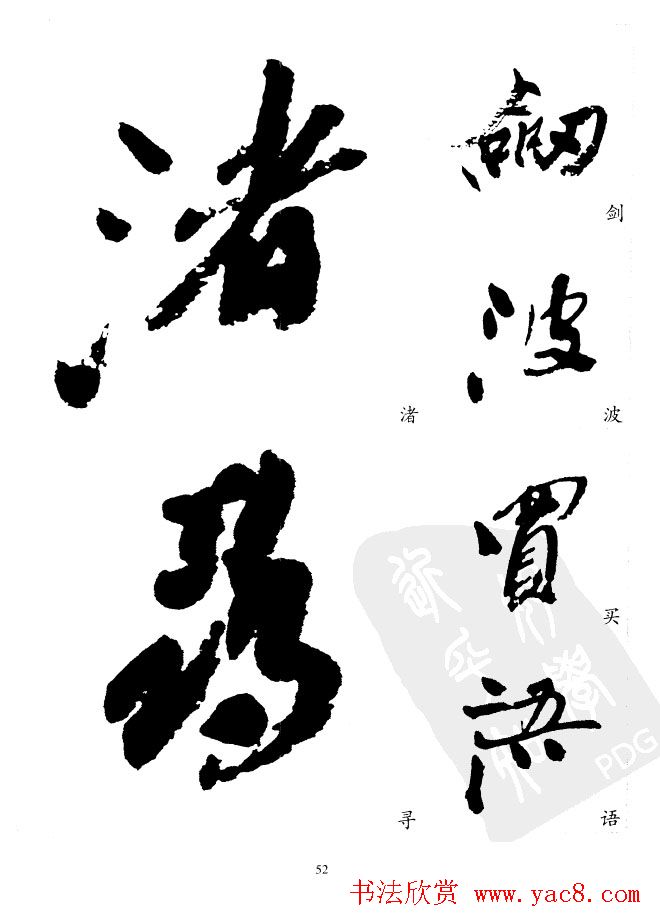 劒
剑
波
波
買
买
語
语
渚
渚
尋
寻
52
书法欣赏 www.yac8.com
PDG